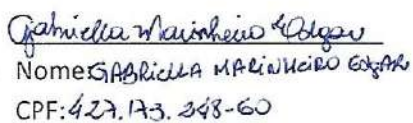 Gabriella Marinheiro Edgar
Nome: GABRIELLA MARINHEIRO EDGAR
CPF: 427.173.248-60